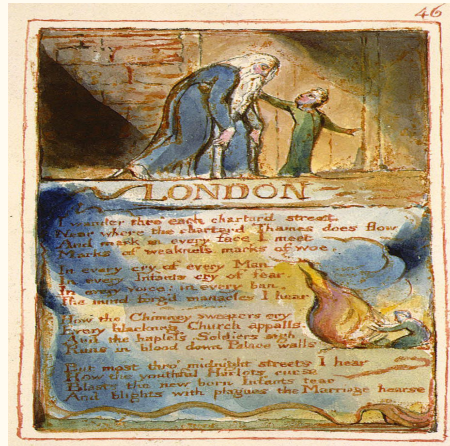 46
LONDON
I wander thro each charterd street.
Near where the charterd Thames does flow
And mark in every face I meet
Marks of weakness marks of woe.
In every cry of every Man.
In every Infants cry of fear.
In every voice; in every ban.
The mind-forg'd manacles I hear
How the Chimney sweepers cry
Every blackning Church appalls.
And the hapless Soldiers sigh
Runs in blood down Palace walls
But most thro' midnight streets I hear
How the youthful Harlots curse
Blasts the new born Infants tear
And blights with plagues the Marriage hearse